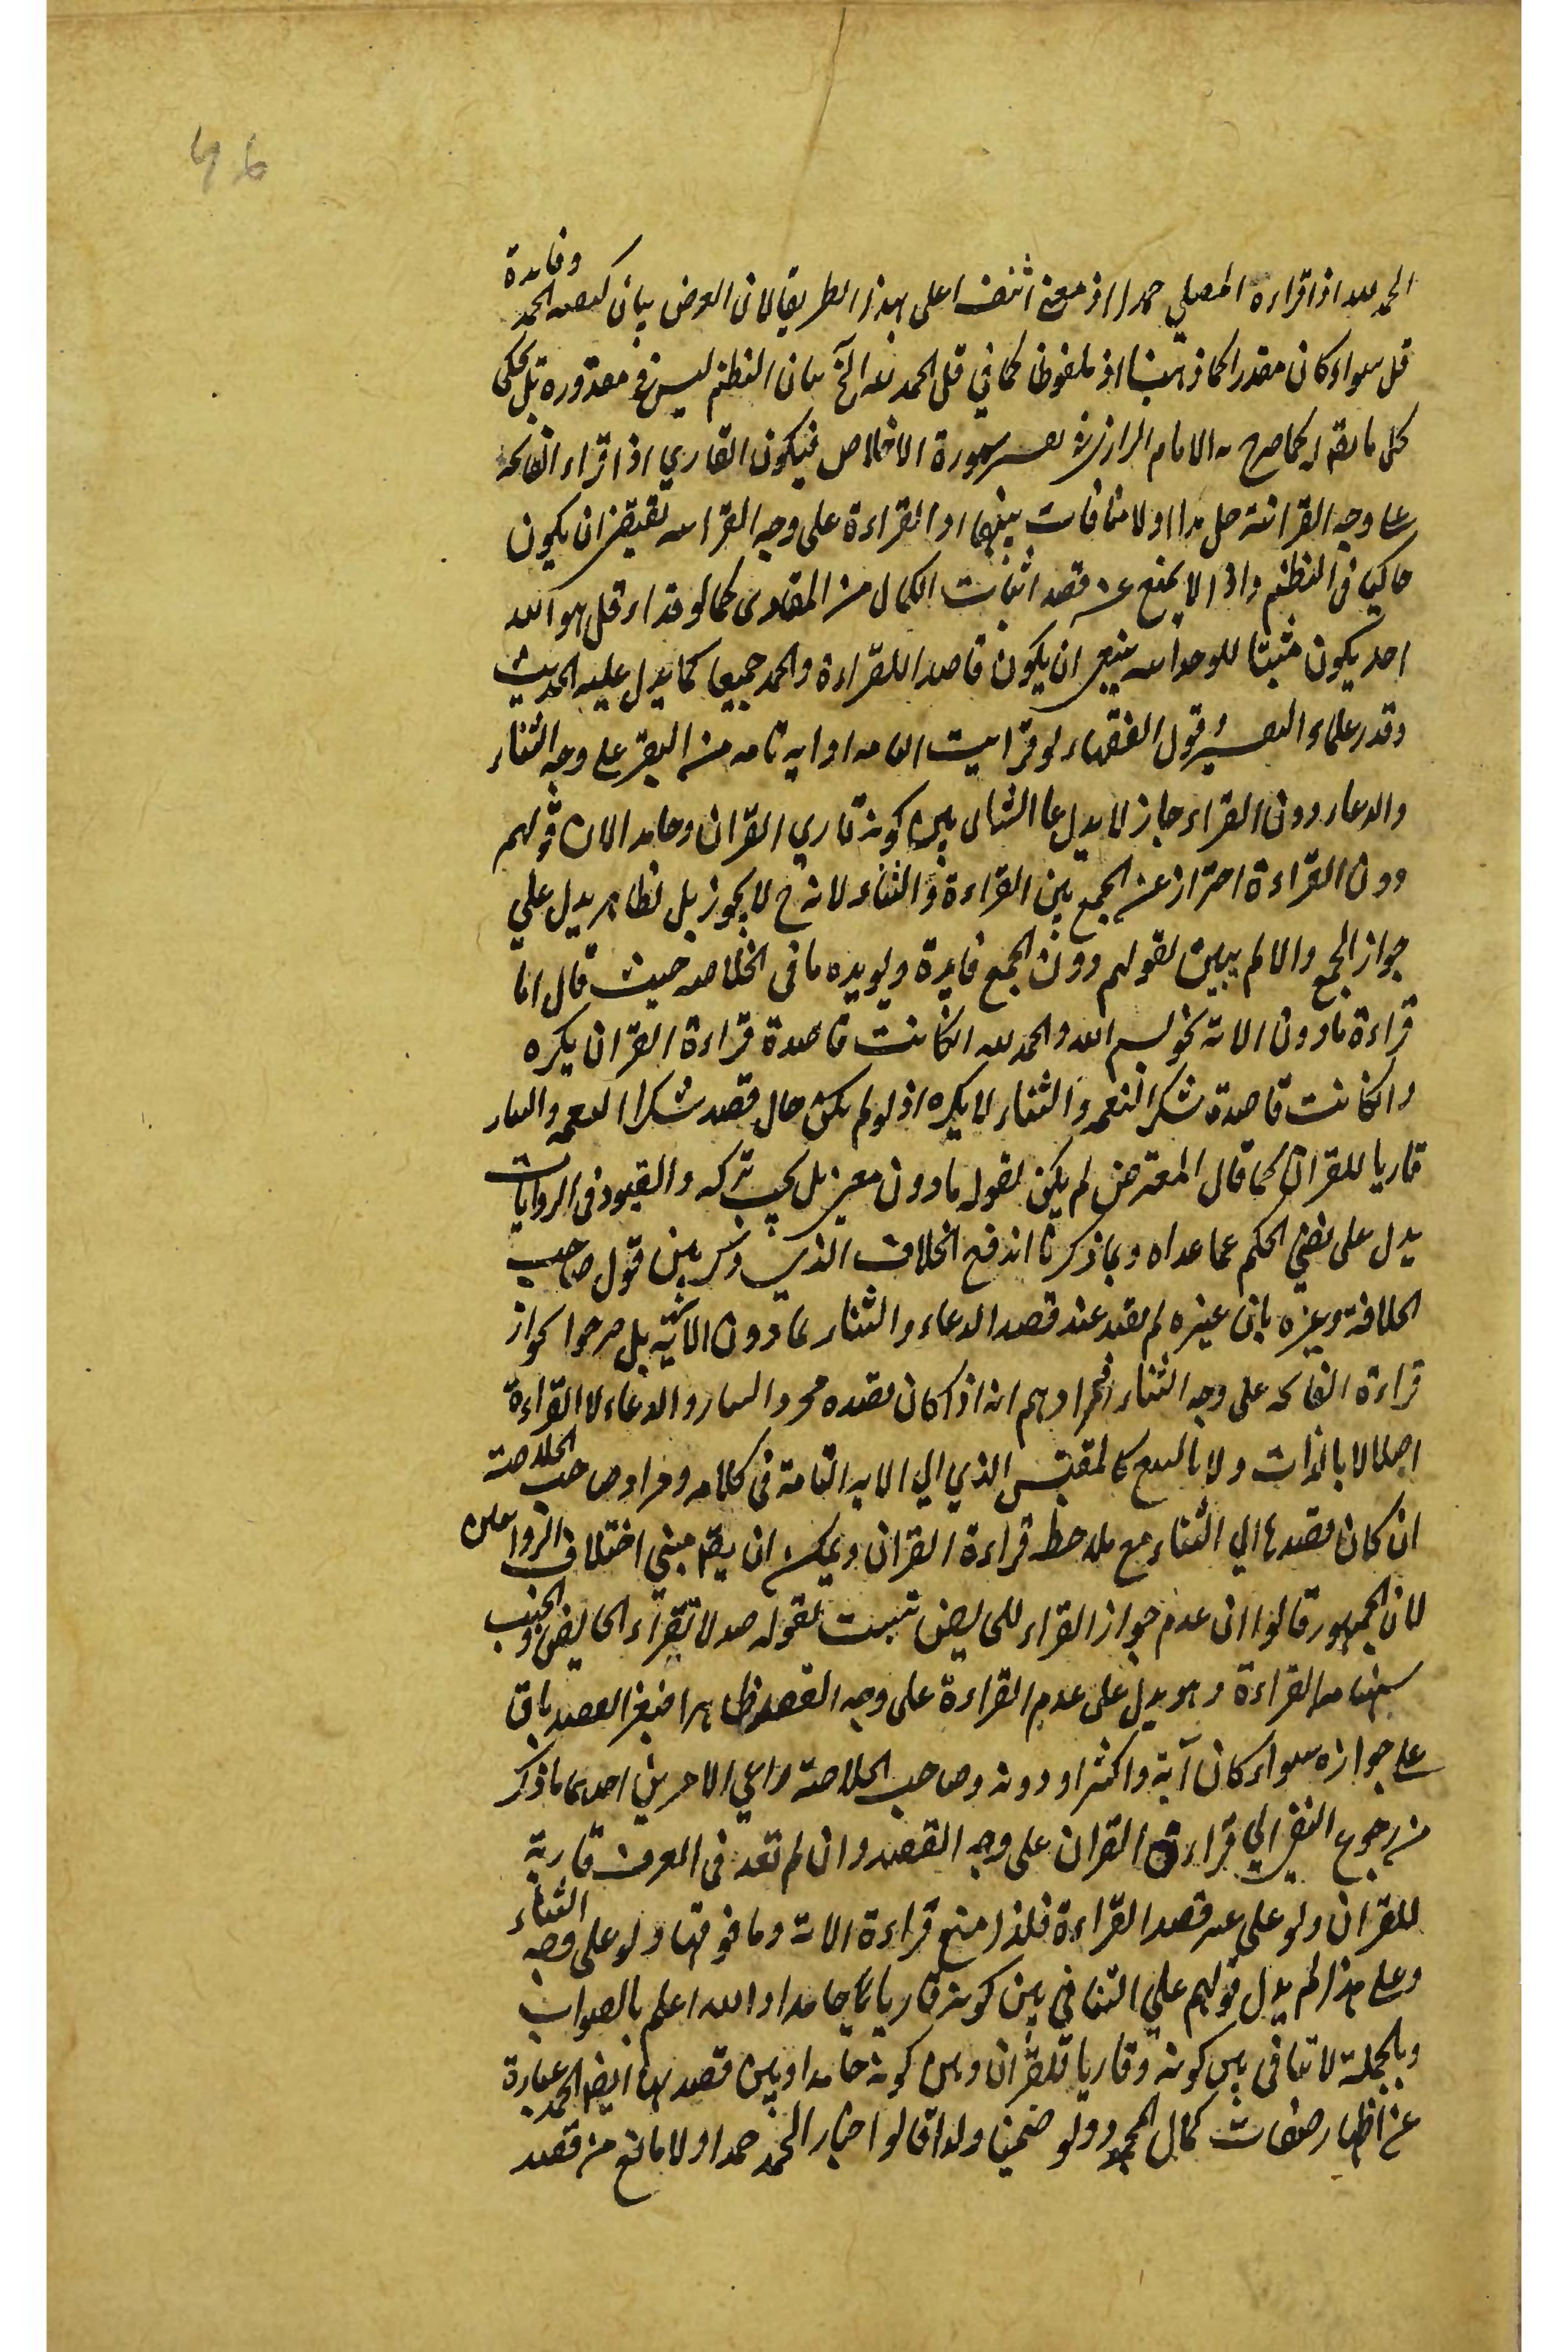 46
وفايدة
الحمد لله اذا قراءه المصلي حمدا اذ معنى على هذا الطريق لان العرض بيان الحمد
قل سواء كان مقدرا كما ذهبنا او ملفوظا كما في قل الحمد لله الخ بيان النظم ليس في مقدوره بل يحكى
كل ما يقرا كما صرح به الامام الرازي في سورة الاخلاص فيكون القاري اذا قراء الفاتحة
على وجه القرانية حامدا اولا منافات بينهما اذ القراءة على وجه القرانيه تقتضى ان يكون
حاكيا فى النظم وذا لا يمنع عن قصد اثبات الكمال من المقارى كما لو قراء قل هو الله
احد يكون مثبتا للوحدانيه ان يكون قاصدا للقراءة والحمد جميعا كما يدل عليه الحديث
وقدر علماء قول الفقهاء لو قرا او ايه تامه من على وجه الثناء
والدعاء دون القراءة جاز لا يدل على بين كونه قاري القران وحامدا لان قولهم
دون القراءة احتراز عن الجمع بين القراءة والثناء لانه ح لا يجوز بل نظاهر يدل علي
جواز الجمع والا لم يبين لقولهم دون الجمع فايدة ويويده ما فى الخلاصه حيث قال اما
قراءة مادون الاية نحو بسم الله والحمد لله ان كانت قاصدة قراءة القران يكره
وان كانت قاصدة شكر النعمه والثناء لا يكره اذ لو لم يكن حال قصد شكر النعمه والثناء
قاريا للقران كما قال المعترض لم يكن لقوله مادون معنى بل يجب تركه والقيود فى الروايات
يدل على نفي الحكم عما عداه وبما ذكرنا اندفع الخلاف الذي بين قول صاحب
الخلاصة وغيره بان غيره لم يقيد عند قصد الدعاء والثناء بما دون الاية بل صرحوا بجواز
قراءة الفاتحه على وجه الثناء فمرادهم انه اذا كان قصده مجرد الثناء والدعاء لا القراءة
اصلا لا بالذات ولا بالتبع كالمقتبس الذي الي الايه التامة فى كلامه ومراد صاحب الخلاصة
ان كان قصدها الي الثناء مع ملاحظه قراءة القران ويمكن ان يقم مبنى اختلاف الروايتين
لان الجمهور قالوا ان عدم جواز القراء للحايض ثبت لقوله صد لا تقراء الحايض والجنب
القراءة وهو يدل على عدم القراءة على وجه القصد ظاهرا فبغير القصد باق
على جوازه سواء كان آية واكثر او دونه وصاحب الخلاصة راعى الامرين احدهما ما ذكر
من رجوع النفى الي قراءة القران على وجه القصد وان لم تعد فى العرف قارية
للقران ولو على غير قصد القراءة فلذا منع قراءة الاية وما فوقها ولو على وجه الثناء
وعلى هذا لم يدل قولهم علي التنافي بين كونه قاريا حامدا والله اعلم بالصواب
وبالجملة لا تنافى بين كونه وقاريا للقران وبين كونه حامدا وبين قصدهما ايضا الحمد عبارة
عن اظهار صفات كمال المحمود ولو ضمنا ولذا قالوا اخبار الحمد حمدا ولا مانع من قصد